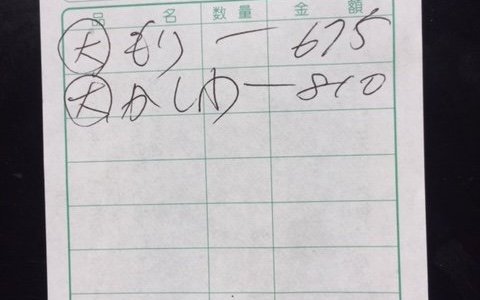 品名 数量 金額
大 もり 一 675
大 かしわ 一 810